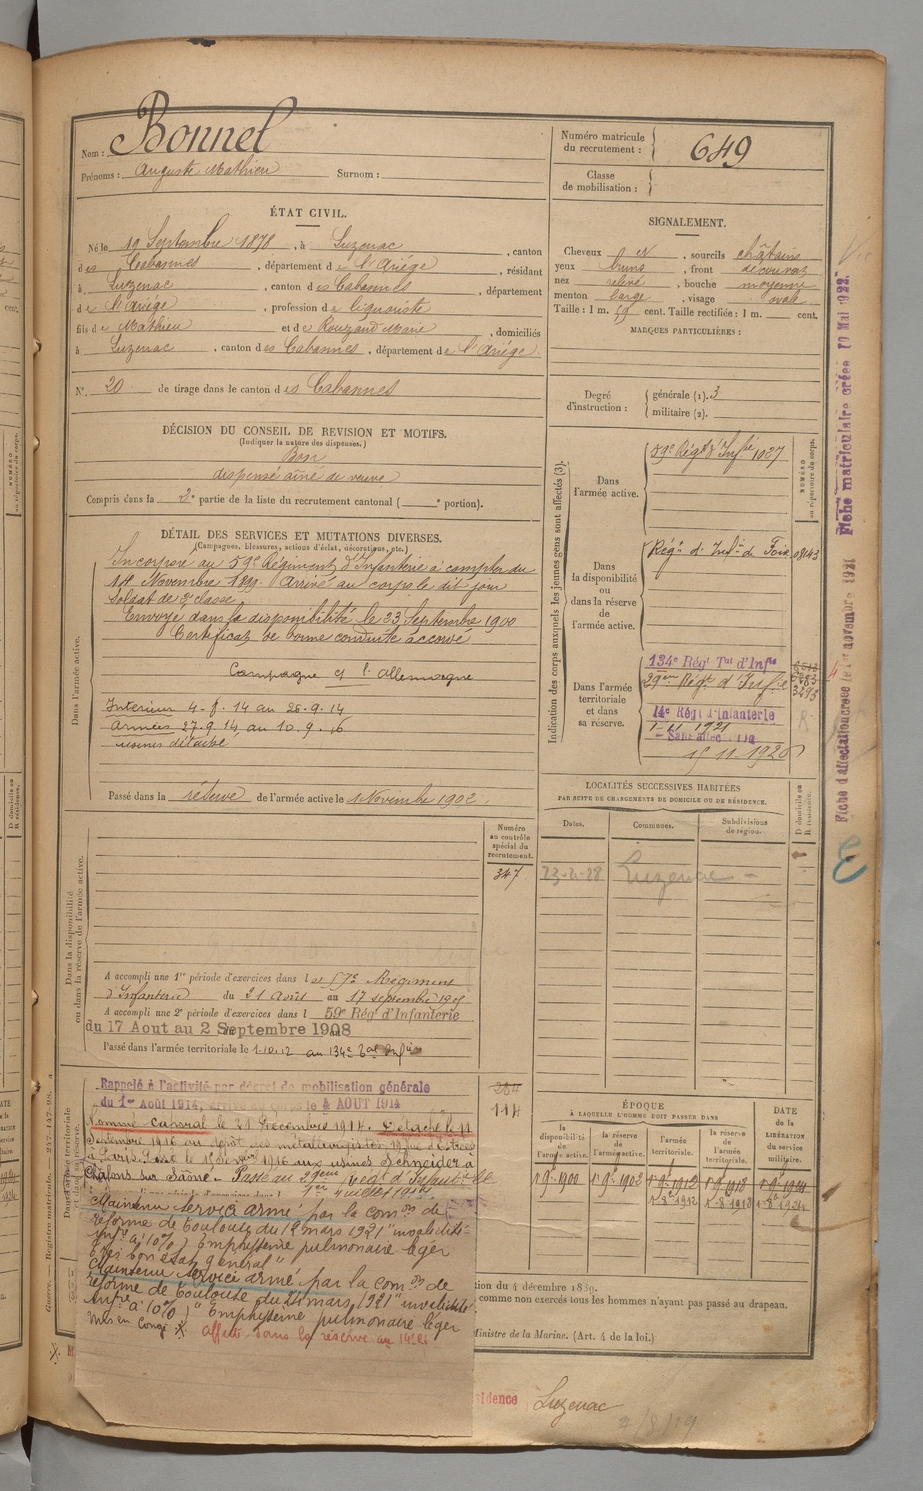 Nom : Bonnel
Prénoms : Auguste Mathieu Surnom :
Numéro matricule
du recrutement : 649
Classe
de mobilisation :
ÉTAT CIVIL.
Né le 19 Septembre 1878, à Luzenac, canton
des Cabannes, département de l'Ariége, résidant
à Luzenac, canton des Cabannes, département
de l'Ariége, profession de liquoriste
fils de Mathieu et de Rouzaud Marie, domiciliés
à Luzenac, canton des Cabannes, département de l'Ariége.
N° 20 de tirage dans le canton des Cabannes
SIGNALEMENT.
Cheveux et, sourcils châtains
yeux bruns, front découvert
nez relevé, bouche moyenne
menton large, visage ovale
Taille : 1 m. 59 cent. Taille rectifiée : 1 m. cent.
MARQUES PARTICULIÈRES :
Degré
d'instruction :
générale (1). 3
militaire (2).
DÉCISION DU CONSEIL DE REVISION ET MOTIFS.
(Indiquer la nature des dispenses.)
Bon
dispensé aîné de veuve
Compris dans la 2e partie de la liste du recrutement cantonal ( e portion).
DÉTAIL DES SERVICES ET MUTATIONS DIVERSES.
(Campagnes, blessures, actions d'éclat, décorations, etc.)
Dans l'armée active.
Incorporé au 59e Régiment d'Infanterie à compter du
14 Novembre 1899. Arrivé au corps le dit jour
Soldat de 2e classe.
Envoyé dans la disponibilité le 23 Septembre 1900
Certificat de bonne conduite accordé
Campagne c/ l'allemagne
Intérieur 4-8-14 au 26-9-14
armées 27-9-14 au 10-9-16
usines détaché
Passé dans la réserve de l'armée active le 1 Novembre 1902.
Indication des corps auxquels les jeunes gens sont affectés (3).
NUMÉRO
au répertoire du corps.
Dans
l'armée active.
59e Régt d'Infie 1027
Dans
la disponibilité
ou
dans la réserve
de
l'armée active.
Régt d'Infie de Foix 08143
Dans l'armée
territoriale
et dans
sa réserve.
134e Régt Tal d'Infie
29eme Régt d'Infie
3293
14e Régt d'Infanterie
1-11 1921
15 11 1926
LOCALITÉS SUCCESSIVES HABITÉES
PAR SUITE DE CHANGEMENTS DE DOMICILE OU DE RÉSIDENCE.
Dates. Communes. Subdivisions
de région.
D domicile ou
R résidence.
23-4-28 Luzenac
Fiche matriculaire créée 10 Mai 1922.
Fiche d'affectation créée le 1er novembre 1921
Numéro
au contrôle
spécial du
recrutement.
347
Dans la disponibilité
ou dans la réserve de l'armée active.
A accompli une 1re période d'exercices dans le 57e Régiment
d'Infanterie du 21 Août au 17 septembre 1905
A accompli une 2e période d'exercices dans l 59e Régt d'Infanterie
du 17 Aout au 2 Septembre 1908
Passé dans l'armée territoriale le 1.10.12 au 134e
284
114
Rappelé à l'activité par décret de mobilisation générale
du 1er Août 1914, arrivé au corps le 4 AOUT 1914
Nommé Caporal le 21 Décembre 1914. Détaché le 11
Septembre 1916 au dépôt des métallurgistes
à Paris. Passé le 1916 aux usines Schneider à
Châlons sur Saône. Passé au 29eme Régt d'Infanterie le
1er Juillet 1917
Maintenu service armé par la Comon de
réforme de Toulouse du 12 mars 1921 "invalidité
infre à 10%) Emphyseme pulmonaire léger
très bon état général"
Maintenu service armé par la comon de
réforme de Toulouse du 24 mars 1921 "invalidité
infre à 10%) "Emphyseme pulmonaire léger
mis en congé
affecté dans la réserve au 14e RI
ÉPOQUE
À LAQUELLE L'HOMME DOIT PASSER DANS
la
disponibilité
de
l'armée active.
la réserve
de
l'armée active.
l'armée
territoriale.
la réserve
de
l'armée
territoriale.
DATE
de la
LIBÉRATION
du service
militaire.
1 9e 1900 1 9e 1902 1 9e 1912 1 9e 1918 1 9e 1924
1-8-1918
tion du 4 décembre 1889.
comme non exercés tous les hommes n'ayant pas passé au drapeau.
Ministre de la Marine. (Art. 4 de la loi.)
sidence Luzenac